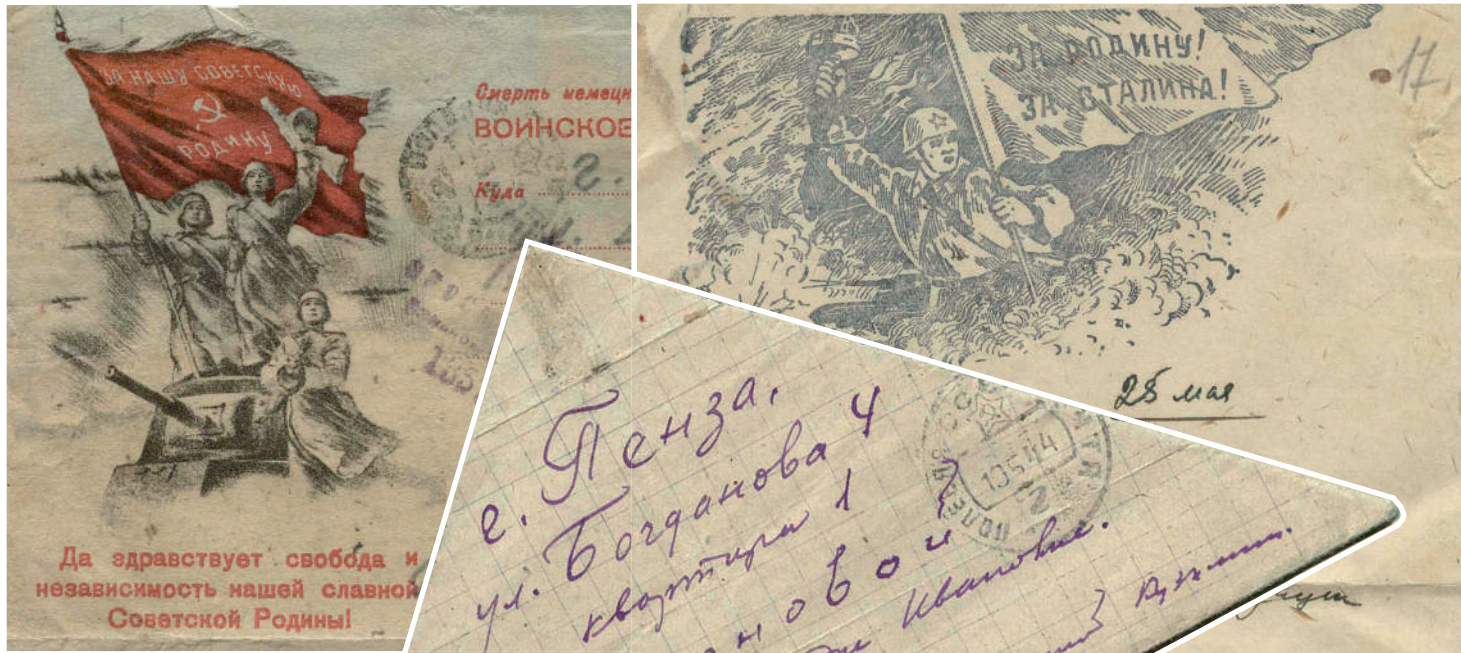 ЗА НАШУ СОВЕТСКУЮ
РОДИНУ
Смерть немецк
ВОИНСКОЕ
Куда
Да здравствует свобода и
независимость нашей славной
Советской Родины!
ЗА РОДИНУ!
ЗА СТАЛИНА!
17
25 мая
г. Пенза,
ул. Богданова 4
квартира 1
новой
Ивановне.